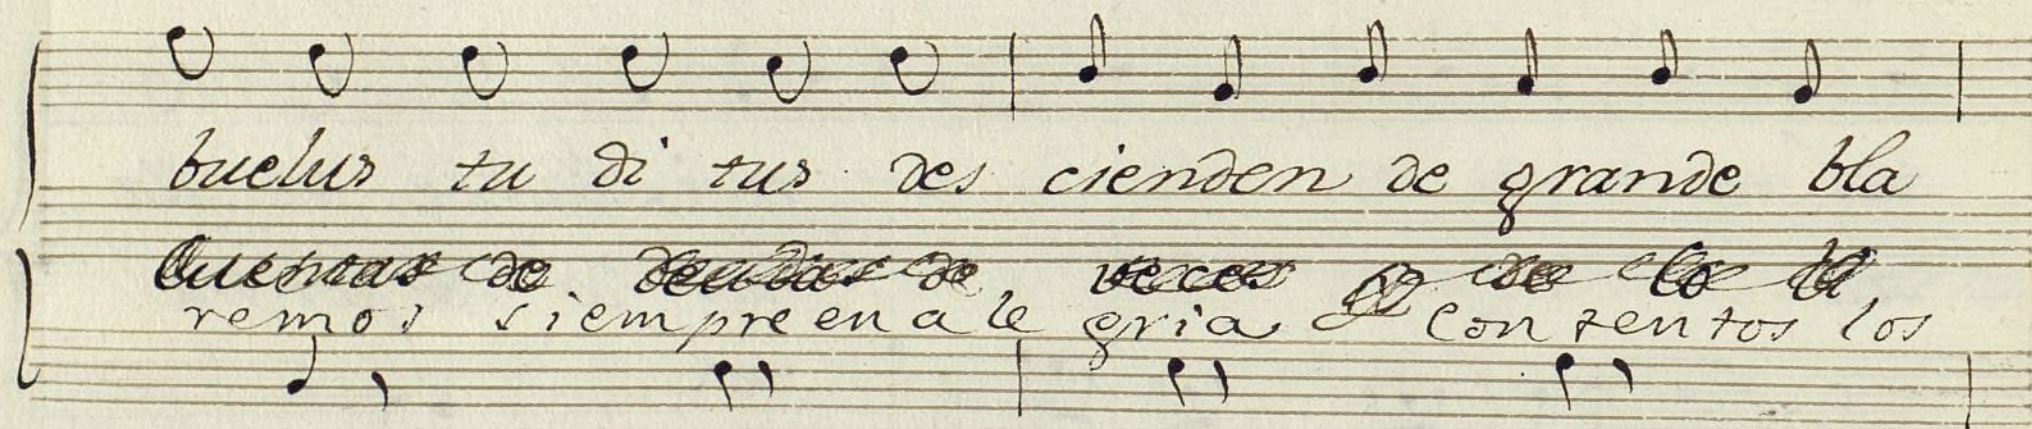 buelus tu di tus des cienden de grande bla
remos siempre en a le gria y con tentos los